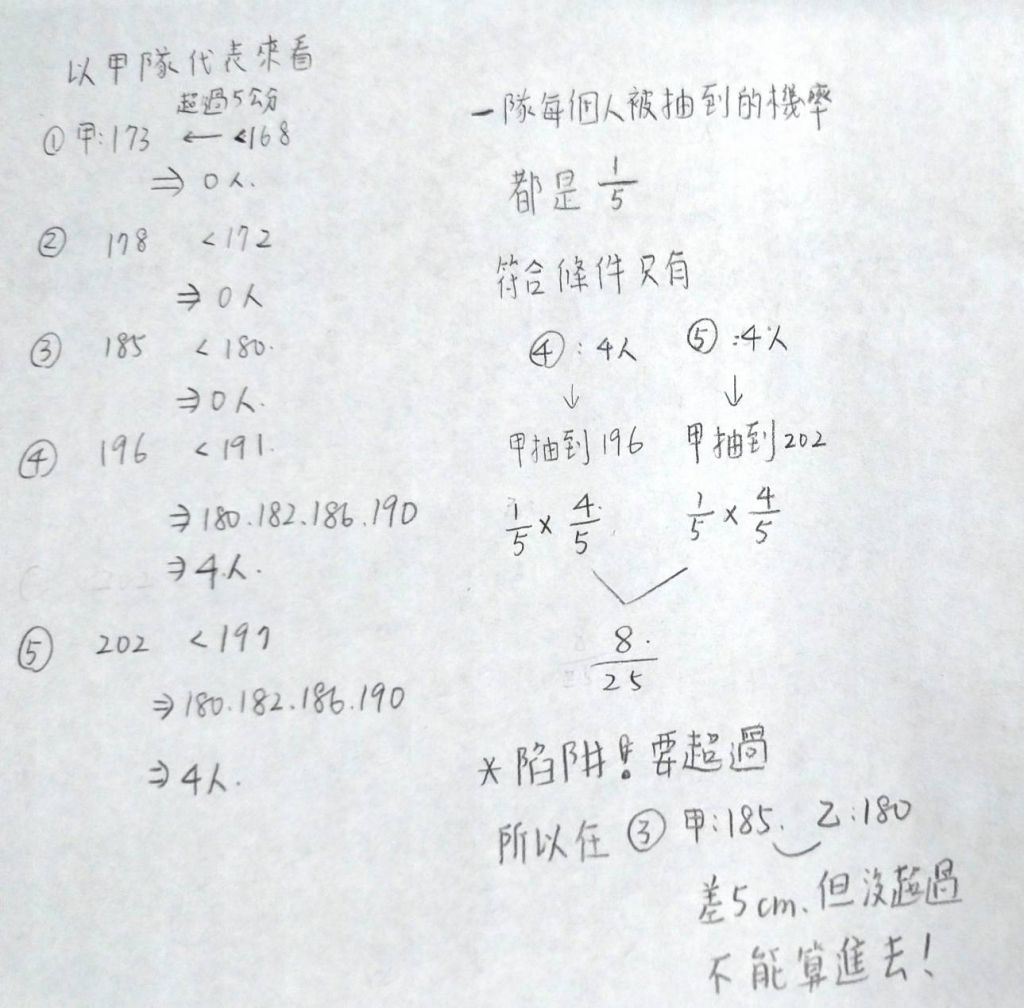 以甲隊代表來看
超過5公分
① 甲:173 ← <168
⇒ 0人.
② 178 <172
⇒ 0人
③ 185 <180.
⇒ 0人.
④ 196 <191.
⇒ 180.182.186.190
⇒ 4人.
⑤ 202 <197
⇒ 180.182.186.190
⇒ 4人.
一隊每個人被抽到的機率
都是 1/5
符合條件只有
④:4人 ⑤:4人
↓ ↓
甲抽到196 甲抽到202
1/5 × 4/5 1/5 × 4/5
8/25
*陷阱!要超過
所以在 ③ 甲:185. 乙:180
差5cm.但沒超過
不能算進去!